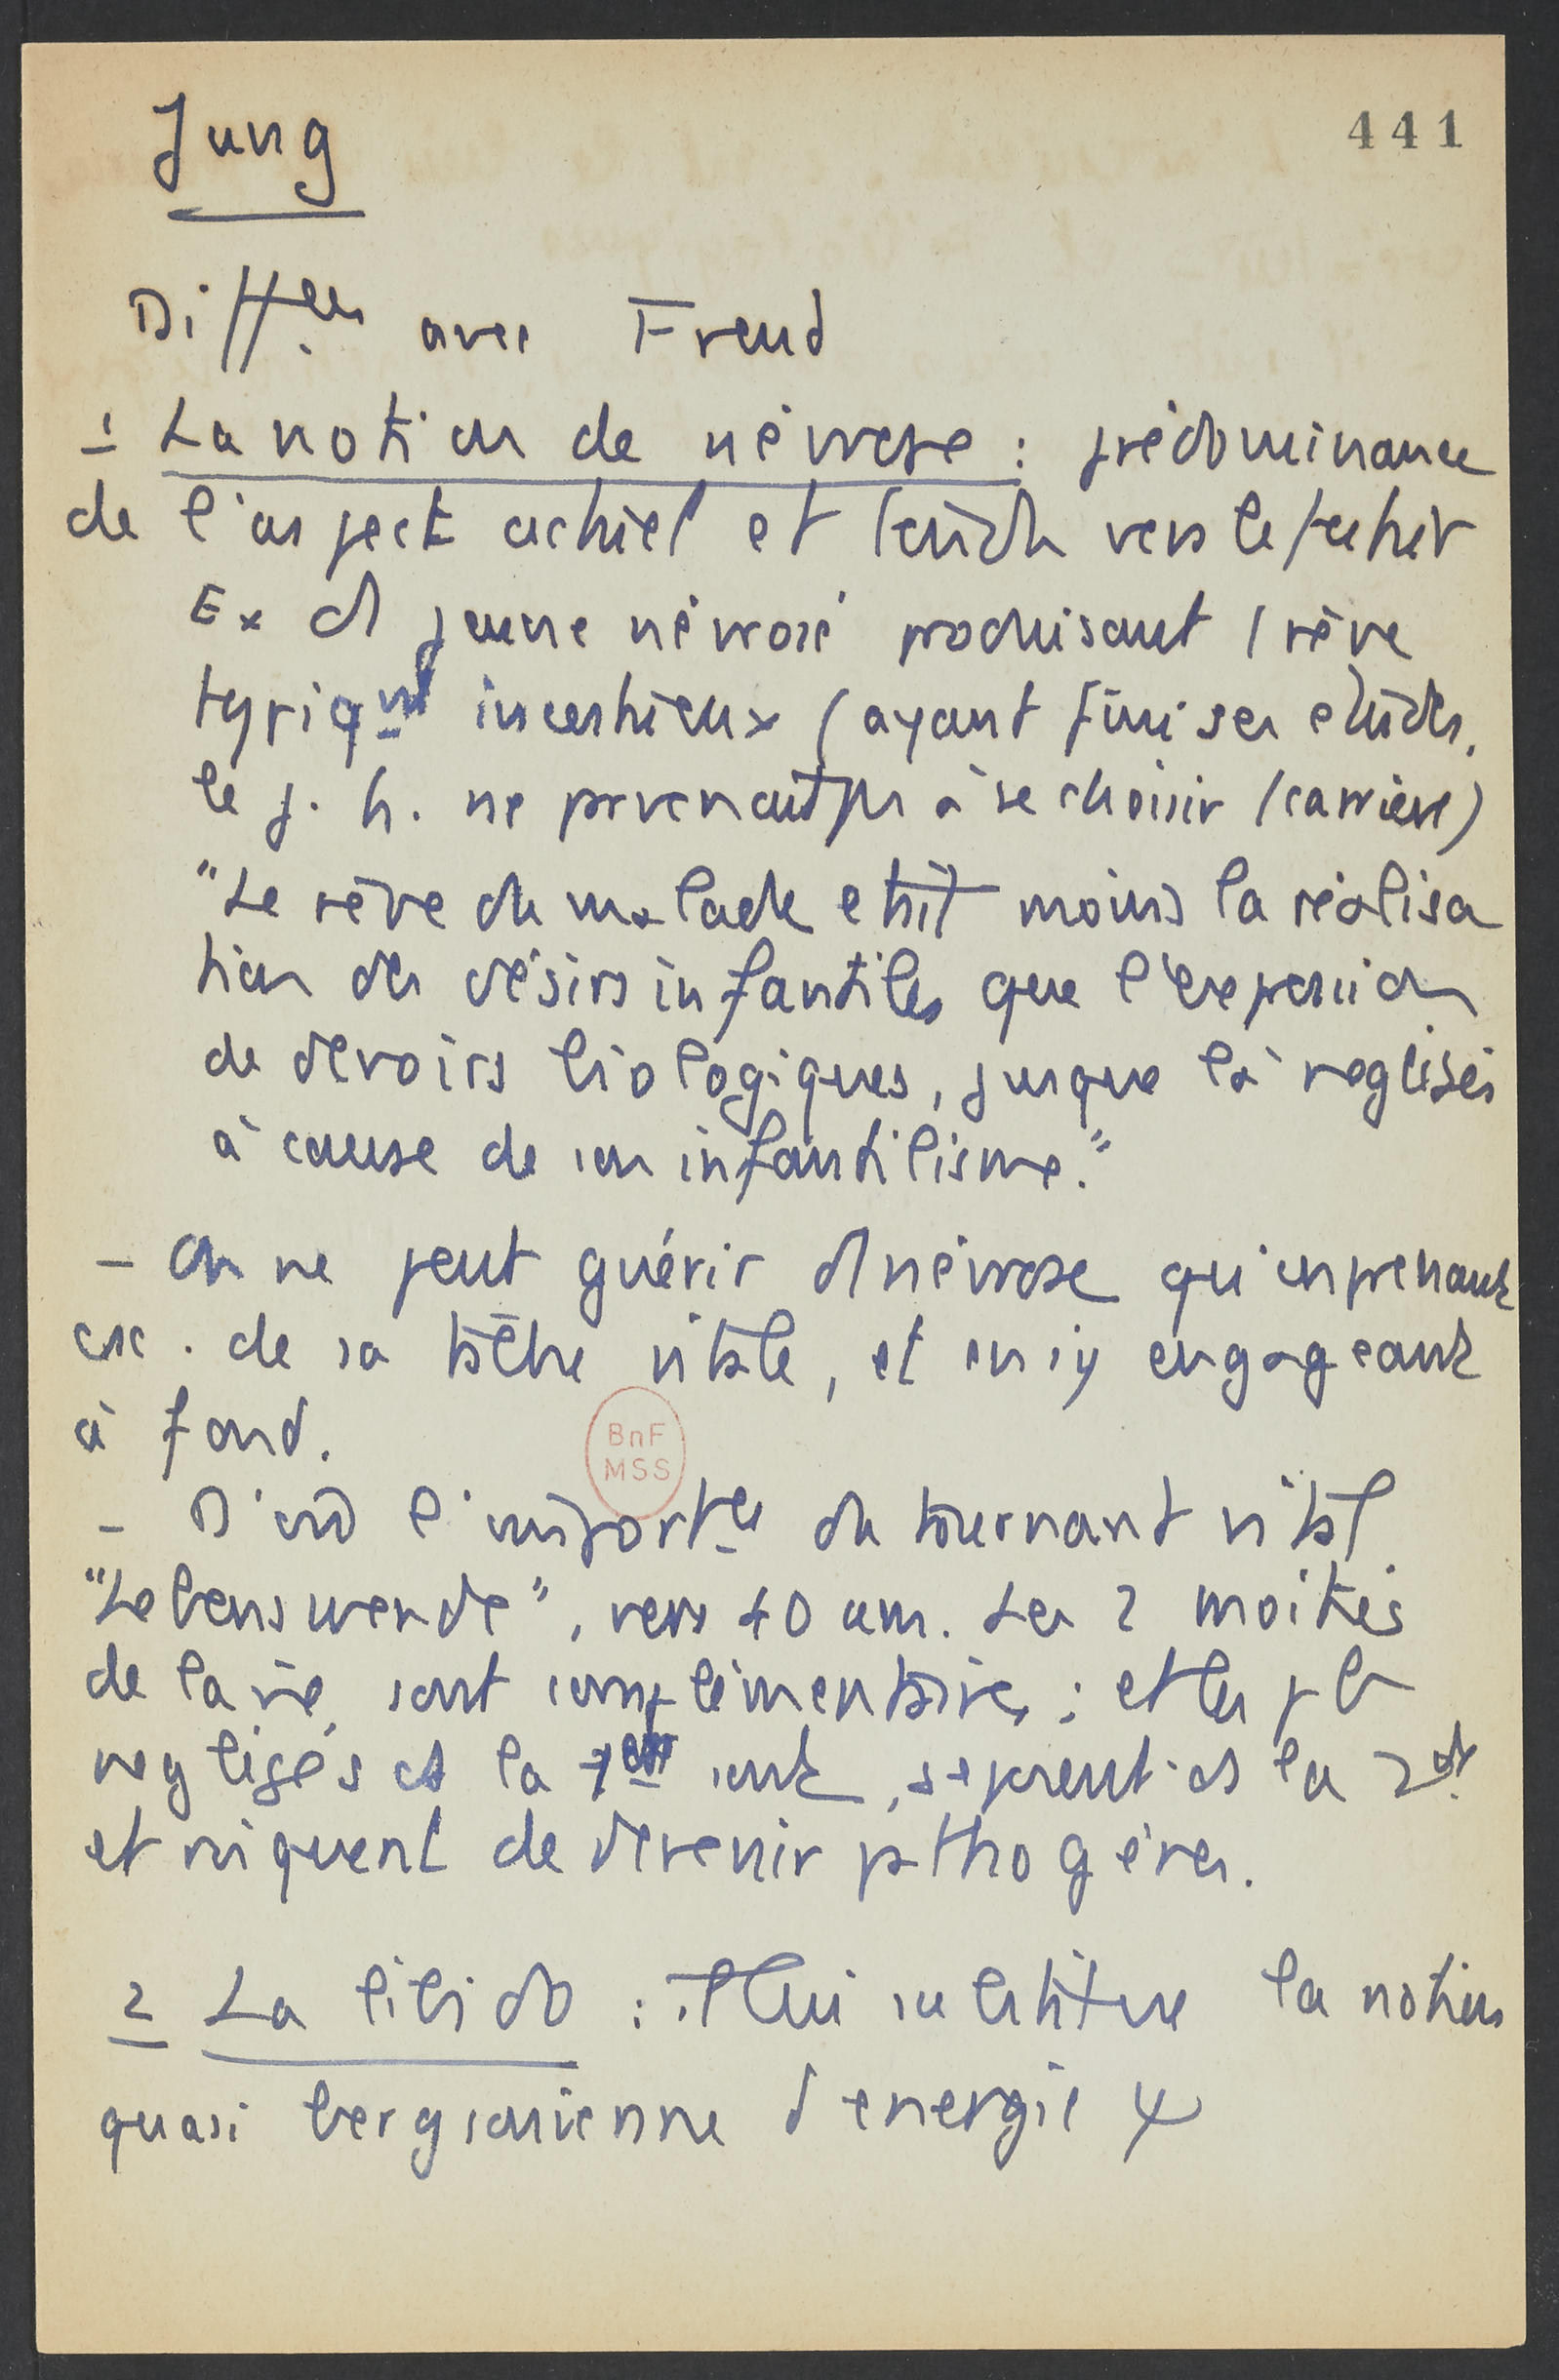 441
Jung
Diff.ces avec Freud
1 La notion de névrose : prédominance
de l'aspect actuel et tendu vers le futur
Ex d'1 jeune névrosé produisant 1 rêve
typiqnt incestueux (ayant fini ses études,
le j. h. ne parvenait pas à se choisir 1 carrière)
"Le rêve du malade etait moins la réalisa
tion des désirs infantiles que l'expression
de devoirs biologiques, jusque là negligés
à cause de son infantilisme."
- On ne peut guérir d'1 névrose qu'en prenant
csc. de sa tâche vitale, et en s'y engageant
à fond.
- D'où l'importce du tournant vital
"Lebenswende", vers 40 ans. Les 2 moitiés
de la vie sont complémentaires ; et les pb
negligés ds la 1ère sont, seront ds la 2de
et risquent de devenir pathogènes.
2 La libido : il lui substitue la notion
quasi bergsonienne d'energie ψ
BnF
MSS